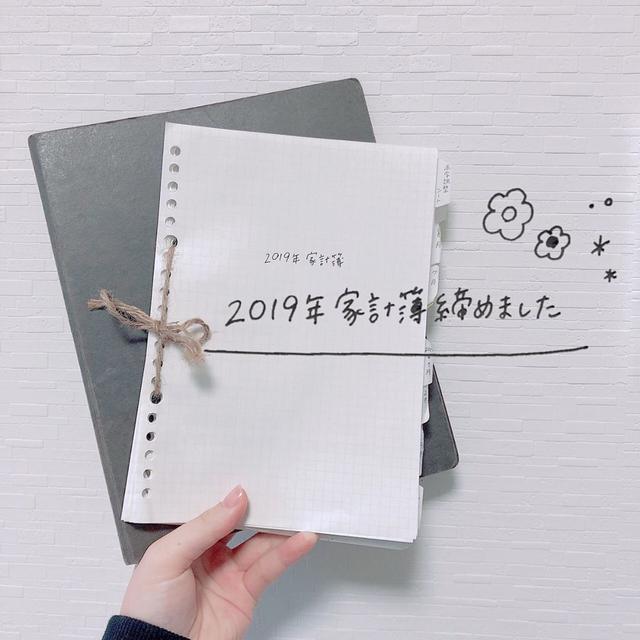 2019年 家計簿
2019年 家計簿 締めました